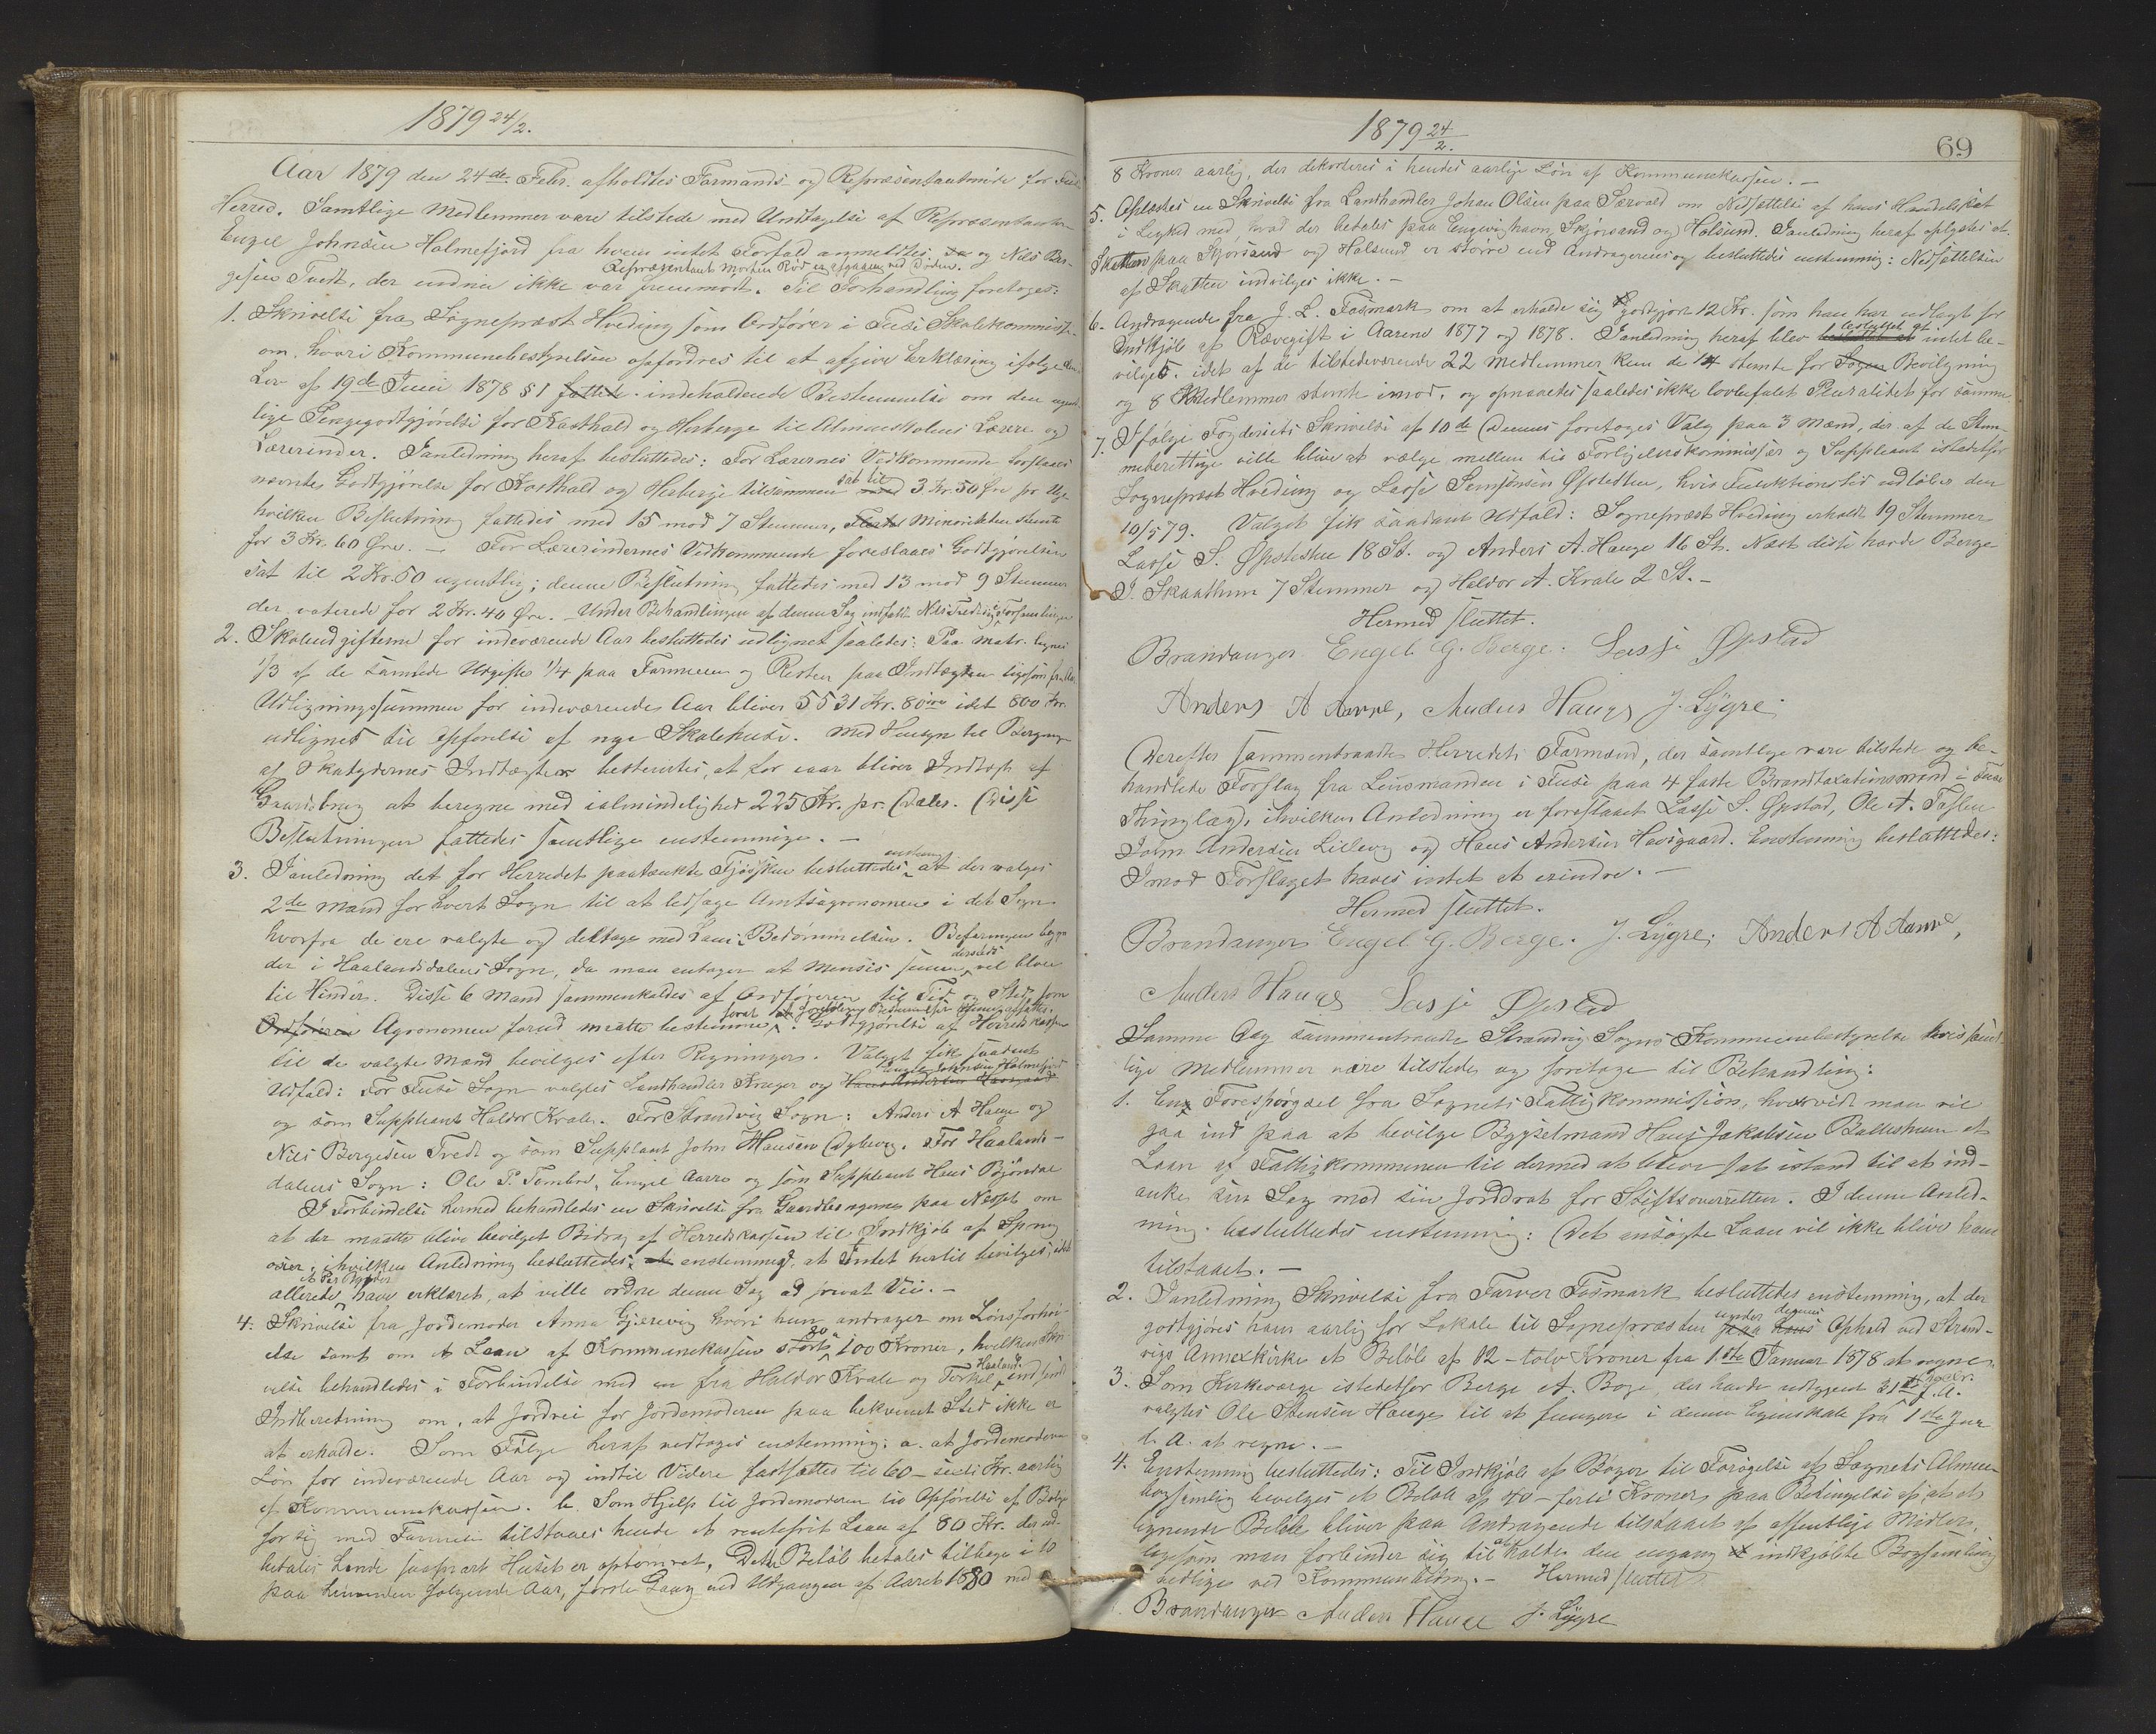 1879 24/2.
Aar 1879 den 24de Febr. afholdtes Formands- og Repræsentantmøde for Fuse
Herred. Samtlige Medlemmer vare tilstede med Undtagelse af Repræsentanten
Engel Johnsen Holmefjord fra hvem intet Forfald anmeldtes og Nils Ber-
Repræsentant Morten Rød er afgaaen ved Døden.
gesen Tvedt, der endnu ikke var fremmødt. Til Forhandling foretoges:
1. Skrivelse fra Sognepræst Hveding som Ordfører i Fuse Skolekommissi-
on, hvori Kommunebestyrelsen opfordres til at afgive Erklæring ifølge
Lov af 19de Juni 1878 § 1 fattede indeholdende Bestemmelse om den ugent-
lige Pengegodtgjørelse for Kosthold og Herberge til Almueskolens Lærere og
Lærerinder. I Anledning heraf besluttedes: For Lærernes Vedkommende foreslaaes
nævnte Godtgjørelse for Kosthold og Herberge tilsammen sat til 3 Kr. 50 Øre pr Uge
hvilken Beslutning fattedes med 15 mod 7 Stemmer, Minoriteten stemte
for 3 Kr. 60 Øre. — For Lærerindernes Vedkommende foreslaaes Godtgjørelsen
sat til 2 Kr. 50 ugentlig; denne Beslutning fattedes med 13 mod 9 Stemmer
der voterede for 2 Kr. 40 Øre. — Under Behandlingen af denne Sag indfatt Nils Tvedt sig i Forsamlingen
2. Skoleudgifterne for indeværende Aar besluttedes udlignet saaledes: Paa Matr. lignes
1/3 af de samlede Udgifter 1/4 paa Formuen og Resten paa Indtægten ligesom
Udligningssummen for indeværende Aar bliver 5531 Kr. 80 Øre idet 800 Kr.
udlignet til Opførelse af nye Skolehuse. Med Hensyn til Beregning
af Skatydernes Indtægter bestemtes, at for iaar bliver Indtægt af
Gaardsbrug at beregne med ialmindelighed 225 Kr. pr. Daler. Disse
Beslutninger fattedes samtlige enstemmige. —
3. I Anledning det for Herredet paatænkte besluttedes enstemmig at der vælges
2de Mand for hvert Sogn til at ledsage Amtsagronomen i det Sogn
hvorfra de ere valgte og deltage med ham i Bedømmelsen. Befaringen begyn
der i Haalandsdalens Sogn, da man antager at dersteds vel bliver
til Hinder. Disse 6 Mand sammenkaldes af Ordføreren til Tid og Sted som
Ordføreren Agronomen forud maatte bestemme. Godtgjørelse af Herredskassen
til de valgte Mænd bevilges efter Regninger. Valget fik saadant
Engel Johnsen Holmefjord
Udfald: For Fuse Sogn valgtes Landhandler Krøger og
og som Suppleant Haldor Kvale. For Strandvig Sogn: Anders A Hauge og
Nils Bergesen Tvedt og som Supplant John Hansen Dyberg. For Haalands-
dalens Sogn: Ole P. Tombre, Engel Aarre og som Suppleant Hans Bjørndal
I Forbindelse hermed behandledes en Skrivelse fra Gaardbrugerne paa Næsset om
at der maatte blive bevilget Bidrag af Herredskassen til Indkjøb af Spring
oxer, i hvilken Anledning besluttedes enstemmigt, at Intet hertil bevilges, idet
allerede have erklæret, at ville ordne denne Sag ad privat Vei. —
4. Skrivelse fra Jordemoder Anna Gjærevig hvori hun andrager om Lønsforhøi-
else samt om et Laan af Kommunekassen stort 80 à 100 Kroner, hvilken Skri-
velse behandledes i Forbindelse med en fra Haldor Kvale og Torkel Haaland indsendt
Indberetning om, at Jordvei for Jordemoderen paa bekvemt Sted ikke er
at erholde. Som Følge heraf vedtoges enstemmig: a. at Jordemoderens
Løn for indeværende Aar og indtil Videre fastsættes til 60 — seksti Kr. aarlig
af Kommunekassen. b. Som Hjelp til Jordemoderen til Opførelse af Bolig
for sig med Familie tilstaaes hende et rentefrit Laan af 80 Kr. der ud-
betales hende saasnart Huset er optømret. Dette Beløb betales tilbage i 10
paa hinanden følgende Aar, første Gang ved Udgangen af Aaret 1880 med
1879 24/2.
69
8 Kroner aarlig, der dekorteres i hendes aarlige Løn af Kommunekassen. —
5. Oplæstes en Skrivelse fra Landhandler Johan Olsen paa Særvold om Nedsættelse af hans Handelskat
i Lighed med, hvad der betales paa Engevighavn, Skjørsand og Holsund. I Anledning heraf oplystes at
Skatten paa Skjørsand og Holsund er større end Andragerens og besluttedes enstemmig: Nedsættelsen
af Skatten indvilges ikke. —
6. Andragende fra J. L. Fosmark om at erholde sig godtgjort 12 Kr. som han har udlagt for
Indkjøb af Rævegift i Aarene 1877 og 1878. I Anledning heraf blev besluttet at intet be-
vilges, idet af de tilstedeværende 22 Medlemmer kun de 14 stemte for Bevilgning
og 8 Medlemmer stemte imod, og opnaaedes saaledes ikke lovbefalet Pluralitet for samme
7. Ifølge Fogderiets Skrivelse af 10de Dennes foretoges Valg paa 3 Mænd, der af de Stem-
meberettige ville blive at vælge mellem til Forligelseskommissær og Suppleant istedetfor
Sognepræst Hveding og Lasse Semsonsen Øpstedten, hvis Funktionstid udløber den
10/5 79. Valget fik saadant Udfald: Sognepræst Hveding erholdt 19 Stemmer
Lasse S. Øpstedten 18 St. og Anders A. Hauge 16 St. Næst disse havde Berge
J. Skaathun 7 Stemmer og Haldor A. Kvale 2 St. —
Hermed sluttet.
Brandanger. Engel G. Berge. Lasse Øpstad
Anders A Aarre, Anders Hauge J. Lygre
Derefter sammentraadte Herredets Formænd, der samtlige vare tilstede og be-
handlede Forslag fra Lensmanden i Fuse paa 4 faste Brandtaxationsmænd i Fuse
Thinglag, i hvilken Anledning er foreslaaet Lasse S. Øpstad, Ole A.
John Andersen Lillevig og Hans Andersen Havsgaard. Enstemmig besluttedes:
Imod Forslaget haves intet at erindre. —
Hermed sluttet.
Brandanger Engel G. Berge. J. Lygre; Anders A Aarre,
Anders Hauge Lasse Øpstad
Samme Dag sammentraadte Strandvig Sogns Kommunebestyrelse hvis samt-
lige Medlemmer vare tilstede og foretoge til Behandling:
1. En Forespørgsel fra Sognets Fattigkommission, hvorvidt man vil
gaa ind paa at bevilge Bygselmand Hans Jakobsen et
Laan af Fattigkommunen til dermed at blive sat istand til at ind-
anke sin Sag mod sin Jorddrot for Stiftsoverretten. I denne Anled-
ning besluttedes enstemmig: Det ansøgte Laan vil ikke blive ham
tilstaaet. —
2. I Anledning Skrivelse fra Farver Fosmark besluttedes enstemmig, at der
godtgjøres ham aarlig for Lokale til Sognepræsten under dennes Ophold ved Strand-
vigs Annexkirke et Beløb af 12 — tolv Kroner fra 1ste Januar 1878 at regne.
3. Som Kirkeværge istedetfor Berge A. Boge, der havde udtjent 31te Decbr. f. A.
valgtes Ole Stensen Hauge til at fungere i denne Egenskab fra 1ste Jan
d. A. at regne. —
4. Enstemmig besluttedes: Til Indkjøb af Bøger til Forøgelse af Sognets Almue-
bogsamling bevilges et Beløb af 40 — førti Kroner paa Betingelse af at et
lignende Beløb bliver paa Andragende tilstaaet af offentlige Midler,
ligesom man forbinder sig til at holde den engang indkjøbte Bogsamling
vedlige ved Kommunebidrag. — Hermed sluttet
Brandanger Anders Hauge J. Lygre